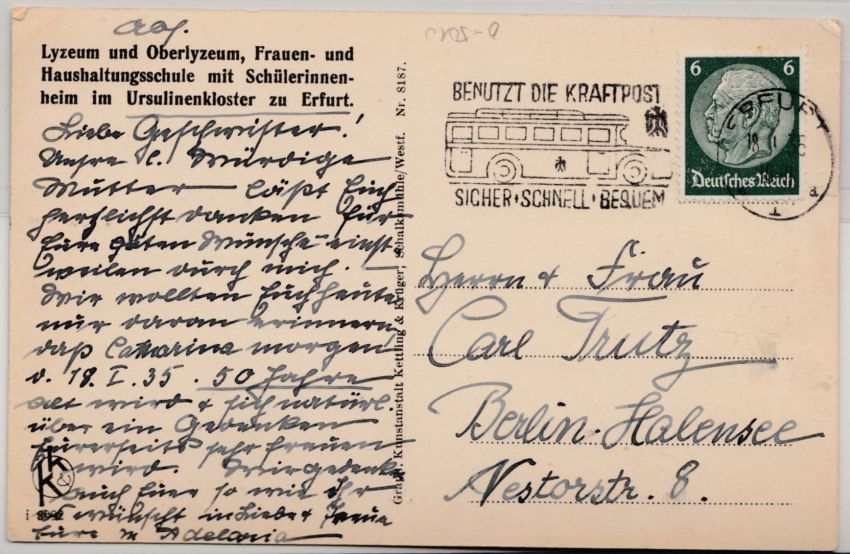 Lyzeum und Oberlyzeum, Frauen- und
Haushaltungsschule mit Schülerinnen-
heim im Ursulinenkloster zu Erfurt.
Liebe Geschwister!
Unsre l. Würdige
Mutter läßt Euch
herzlichst danken für
Eure guten Wünsche einst-
weilen durch mich.
Wir wollten Euch heute
nur daran erinnern,
daß Catharina morgen,
d. 19. I. 35. 50 Jahre
alt wird & sich natürl.
über ein Gedenken
Eurerseits sehr freuen
wird. Wir gedenken
auch Euer so wie Ihr
wünscht in Liebe & Treue
Eure M Adelaria
i 8992
Graph. Kunstanstalt Kettling & Krüger, Schalksmühle/Westf. Nr. 8187.
BENUTZT DIE KRAFTPOST
SICHER·SCHNELL·BEQUEM
6 6
Deutsches Reich
ERFURT
18
1
a
Herrn & Frau
Carl Trutz
Berlin-Halensee
Nestorstr. 8.